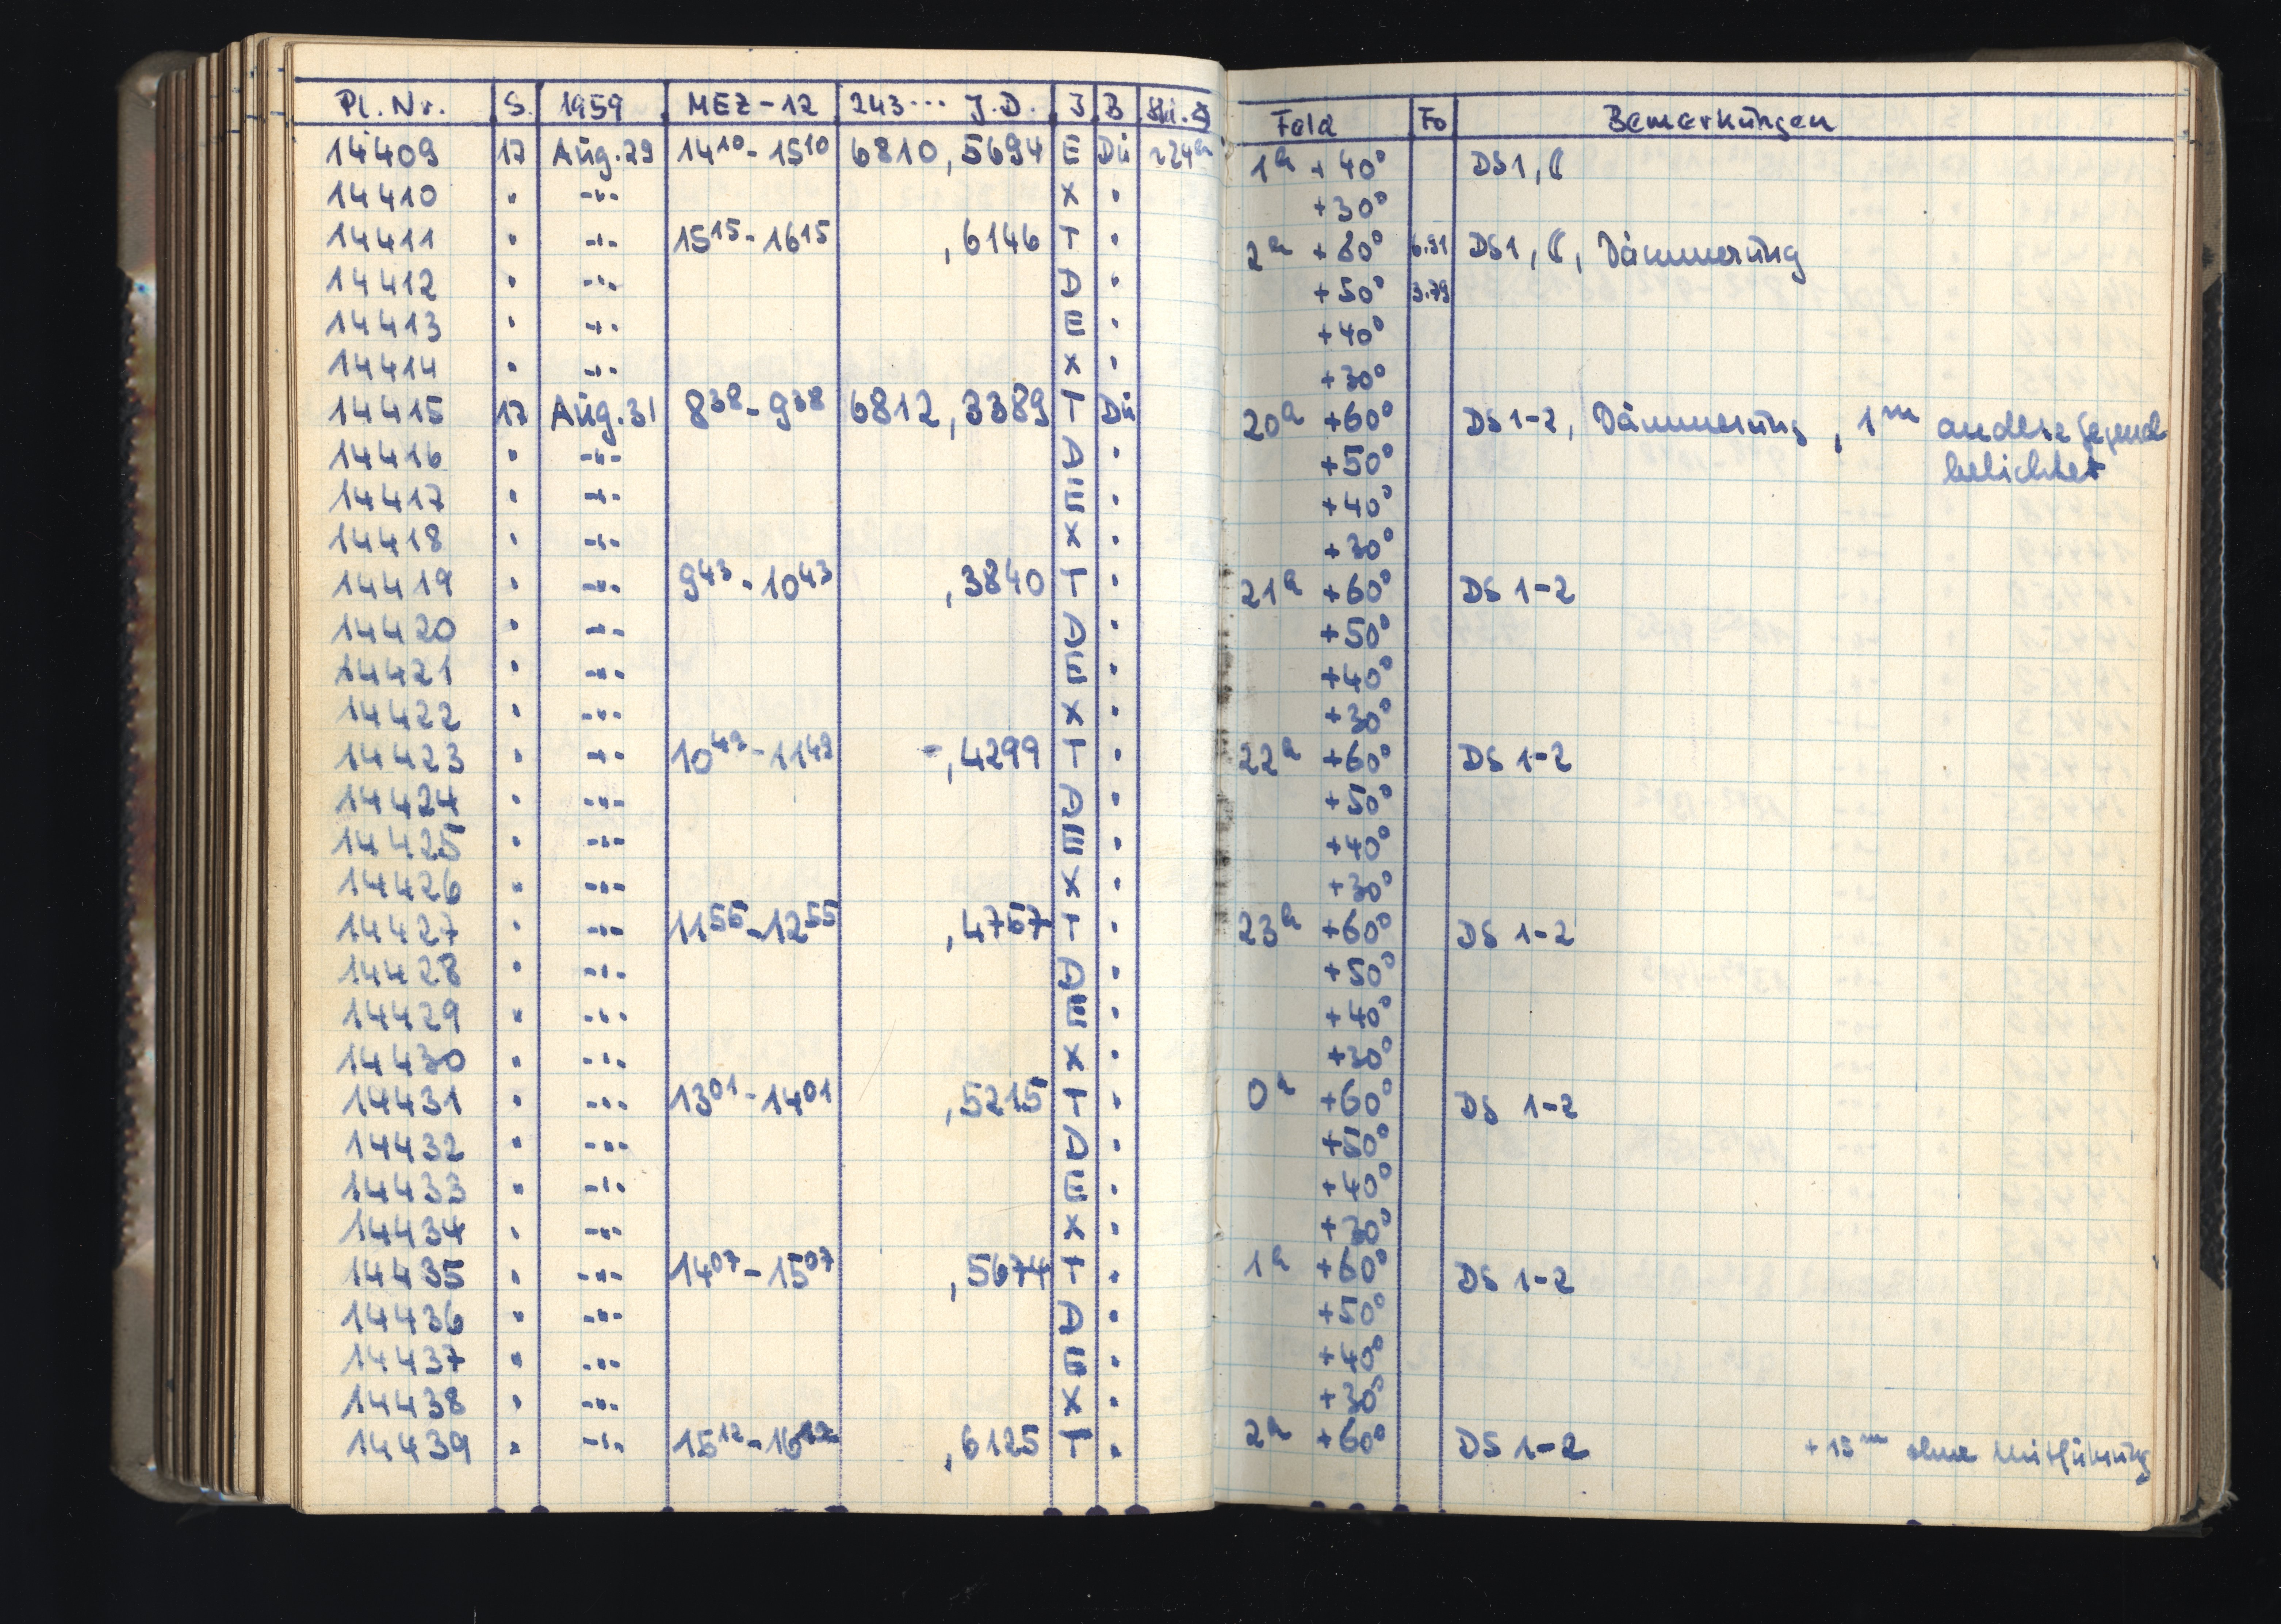 Pl. Nr. S. 1959 MEZ-12 243... J.D. J B Feld Fo Bemerkungen
14409 17 Aug.29 14¹⁰-15¹⁰ 6810,5694 E Dü ~24ʰ 1ʰ +40° DS1, ☾
14410 " -"- X " +30°
14411 " -"- 15¹⁵-16¹⁵ ,6146 T " 2ʰ +60° 6.91 DS1, ☾, Dämmerung
14412 " -"- D " +50° 3.79
14413 " -"- E " +40°
14414 " -"- X " +30°
14415 17 Aug.31 8³⁸-9³⁸ 6812,3389 T Dü 20ʰ +60° DS1-2, Dämmerung, 1ᵐ andere Gegend
belichtet
14416 " -"- D " +50°
14417 " -"- E " +40°
14418 " -"- X " +30°
14419 " -"- 9⁴³-10⁴³ ,3840 T " 21ʰ +60° DS 1-2
14420 " -"- D " +50°
14421 " -"- E " +40°
14422 " -"- X " +30°
14423 " -"- 10⁴⁹-11⁴⁹ ,4299 T " 22ʰ +60° DS 1-2
14424 " -"- D " +50°
14425 " -"- E " +40°
14426 " -"- X " +30°
14427 " -"- 11⁵⁵-12⁵⁵ ,4757 T " 23ʰ +60° DS 1-2
14428 " -"- D " +50°
14429 " -"- E " +40°
14430 " -"- X " +30°
14431 " -"- 13⁰¹-14⁰¹ ,5215 T " 0ʰ +60° DS 1-2
14432 " -"- D " +50°
14433 " -"- E " +40°
14434 " -"- X " +30°
14435 " -"- 14⁰⁷-15⁰⁷ ,5674 T " 1ʰ +60° DS 1-2
14436 " -"- D " +50°
14437 " -"- E " +40°
14438 " -"- X " +30°
14439 " -"- 15¹²-16¹² ,6125 T " 2ʰ +60° DS 1-2 +15ᵐ ohne Mitführung